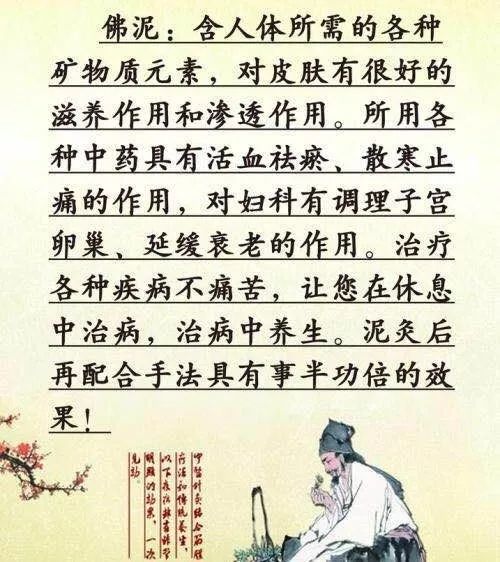 佛泥：含人体所需的各种
矿物质元素，对皮肤有很好的
滋养作用和渗透作用。所用各
种中药具有活血祛瘀、散寒止
痛的作用，对妇科有调理子宫
卵巢、延缓衰老的作用。治疗
各种疾病不痛苦，让您在休息
中治病，治病中养生。泥灸后
再配合手法具有事半功倍的效
果！